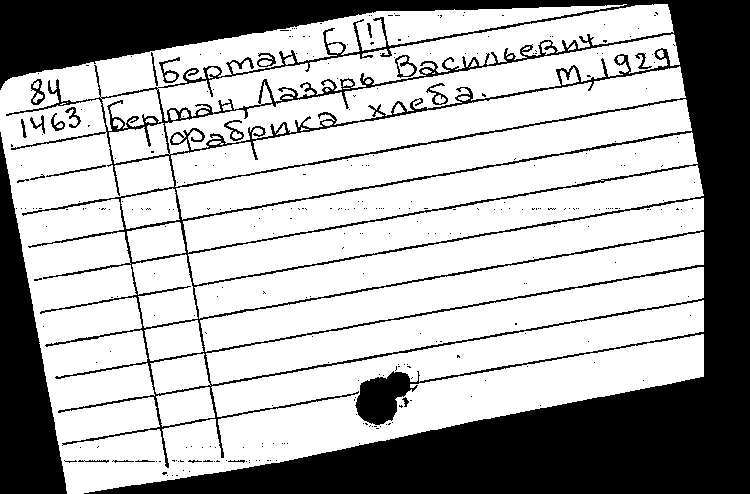 84
1463.
Бертан, Б [!].
Берман, Лазарь Васильевич.
Фабрика хлеба. М, 1929